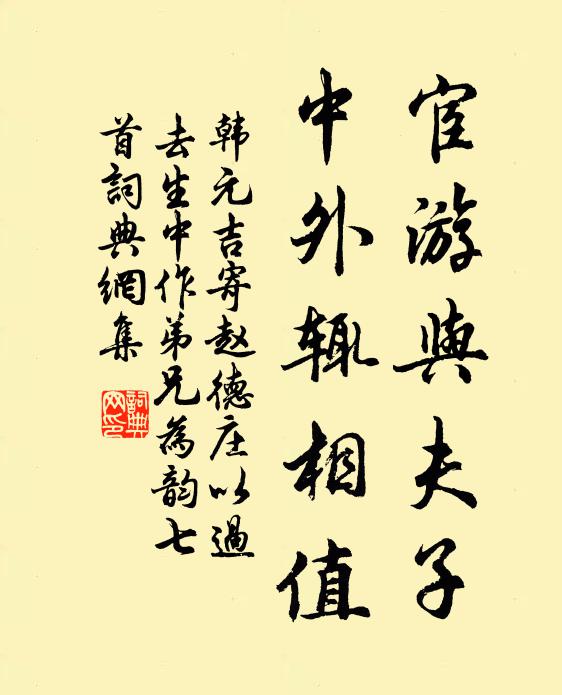 宦游與夫子
中外輒相值
韩元吉寄赵德庄以過
去生中作弟兄為韵七
首詞典網集
詞典
网印